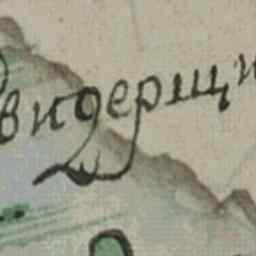 видерщи